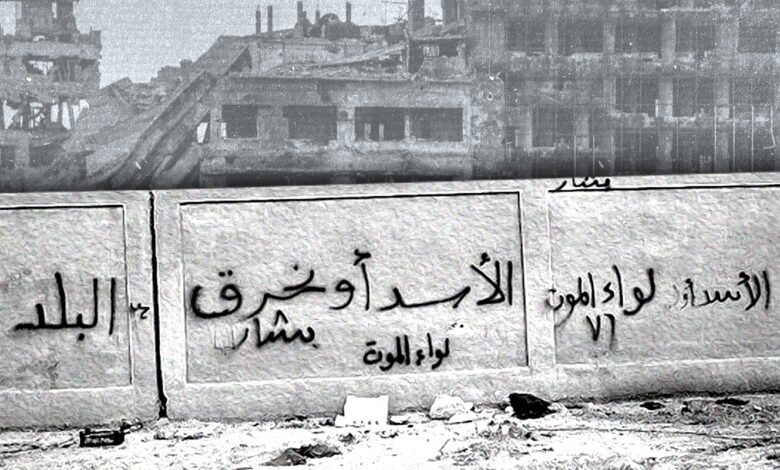 بشار
الأسد أو لواء الموت
٧٦
الأسد أو نحرق البلد
بشار
لواء الموت